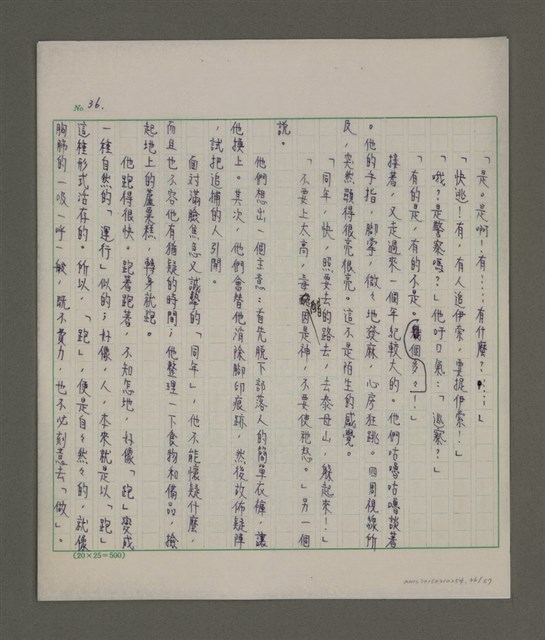 No. 36.
「是。是啊!有……有什麼?……」
「快逃!有,有人追伊索,要捉伊索!」
「哦?是警察嗎?」他吁口氣:「巡察?」
「有的是,有的不是。個多々!」
接著,又走過來一個年紀較大的。他們咕嚕咕嚕談著
。他的手指,腳掌,微々地發麻,心房狂跳。四周視線所
及,突然顯得很亮很亮。這不是陌生的感覺。
「同年,快,照要去的路去,去泰母山,躲起來!」
「不要上太高,是神,不要使祂怒。」另一個
說。
他們想出一個主意:首先脫下部落人的簡單衣褲,讓
他換上。其次,他們會替他消除腳印痕跡,然後故佈疑陣
,試把追捕的人引開。
面對滿臉焦急又誠摯的「同年」,他不能懷疑什麼,
而且也不容他有猶疑的時間;他整理一下食物和備品,撿
起地上的蘆粟糕,轉身就跑。
他跑得很快。跑著跑著,不知怎地,好像「跑」變成
一種自然的「運行」似的;好像,人,本來就是以「跑」
這種形式活存的。所以,「跑」,便是自々然々的,就像
胸肺的一吸一呼一般,既不費力,也不必刻意去「做」。
(20×25=500)